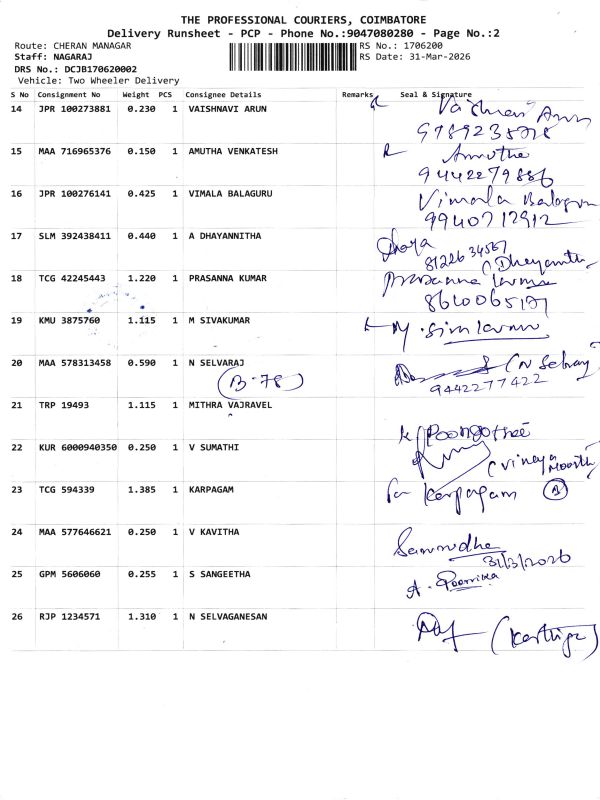 THE PROFESSIONAL COURIERS, COIMBATORE
Delivery Runsheet - PCP - Phone No.:9047080280 - Page No.:2
Route: CHERAN MANAGAR RS No.: 1706200
Staff: NAGARAJ RS Date: 31-Mar-2026
DRS No.: DCJB170620002
Vehicle: Two Wheeler Delivery
S No Consignment No Weight PCS Consignee Details Remarks Seal & Signature
14 JPR 100273881 0.230 1 VAISHNAVI ARUN
15 MAA 716965376 0.150 1 AMUTHA VENKATESH Amutha
9442279886
16 JPR 100276141 0.425 1 VIMALA BALAGURU Vimala Balaguru
9940712912
17 SLM 392438411 0.440 1 A DHAYANNITHA
8122634567
18 TCG 42245443 1.220 1 PRASANNA KUMAR
19 KMU 3875760 1.115 1 M SIVAKUMAR
20 MAA 578313458 0.590 1 N SELVARAJ (N Selvaraj)
B-78 9442277422
21 TRP 19493 1.115 1 MITHRA VAJRAVEL
22 KUR 6000940350 0.250 1 V SUMATHI
23 TCG 594339 1.385 1 KARPAGAM Karpagam
24 MAA 577646621 0.250 1 V KAVITHA
31/3/2026
25 GPM 5606060 0.255 1 S SANGEETHA
26 RJP 1234571 1.310 1 N SELVAGANESAN (Karthiga)